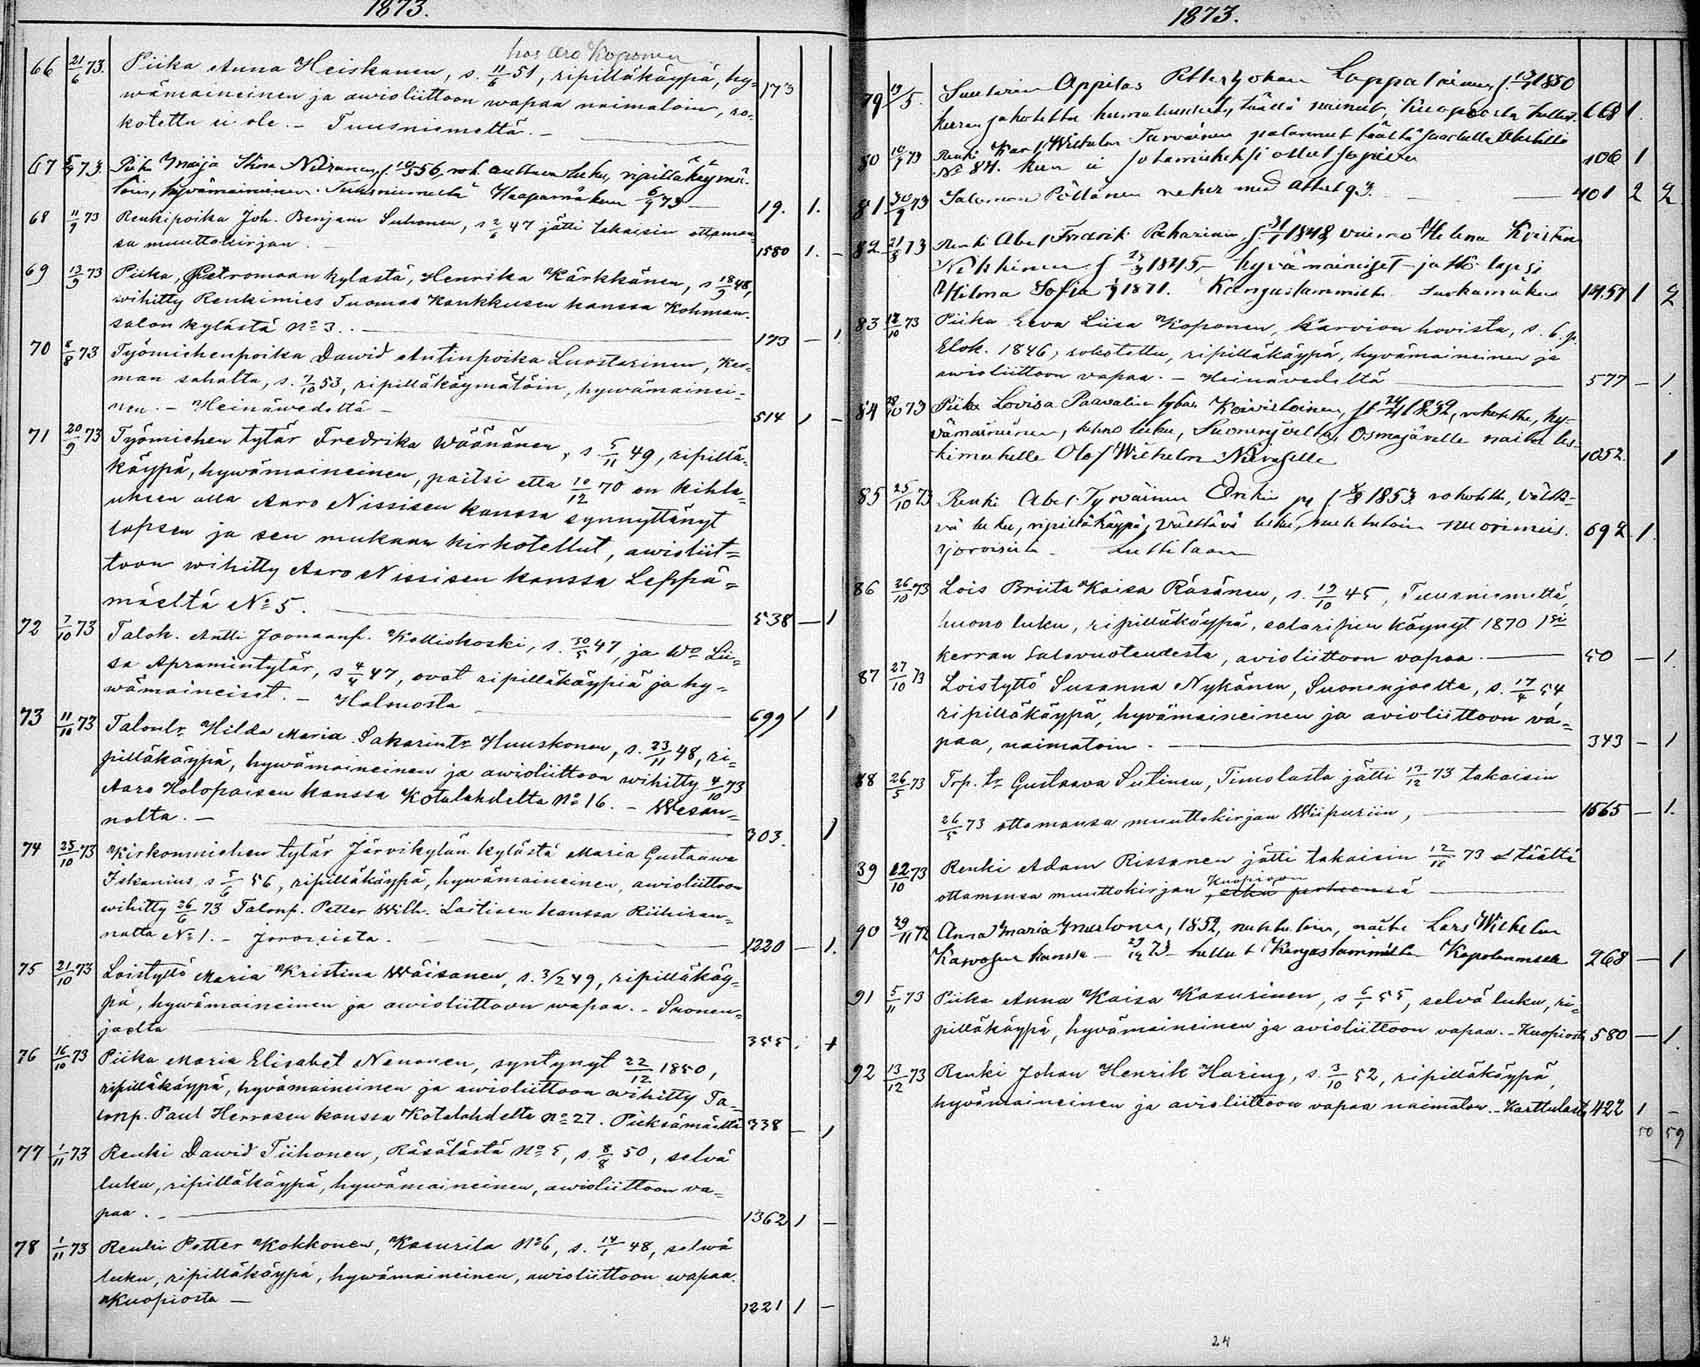 1873.
hos Aro Koponen
66 21/6 73. Piika Anna Heiskanen, s. 11/6 51, ripilläkäypä, hy-
wämaineinen ja awioliittoon wapaa naimatoin, ro- 173
kotettu ei ole. - Tuusniemeltä. -
67 6/9 73. Piika Maija Stina
toin, hywämaineinen. Tuusniemeltä Haapamäkeen 6/9 73 — 19. 1.
68 11/9 73 Renkipoika Joh. Benjam Suhonen, s 2/6 47 jätti takaisin ottaman-
sa muuttokirjan. 1580 1. -
69 13/9 73 Piika, Petromaan kylästä, Henrika Kärkkänen, s 18/9 48,
wihitty Renkimies Tuomas Kaukkusen kanssa Kohman-
salon kylästä No 3. 173 — 1
70 8/8 73 Työmiehenpoika Dawid Antinpoika Luostarinen, Ker-
man sahalta, s. 7/10 53, ripilläkäymätöin, hywämainei-
nen. - Heinäwedeltä - 514 1 -
71 20/9 73 Työmiehen tytär Fredrika Wäänänen, s. 5/11 49, ripillä-
käypä, hywämaineinen, paitsi että 10/12 70 on kihla-
uksen alla Aaro Nissisen kanssa synnyttänyt
lapsen ja sen mukaan kirkotellut, awioliit-
toon wihitty Aaro Nissisen kanssa Leppä-
mäeltä No 5. 538 — 1
72 7/10 73 Talok. Antti Joonaanp. Kalliokoski, s. 30/5 47, ja Wo Lii-
sa Apramintytär, s 4/4 47, ovat ripilläkäypiä ja hy-
wämaineiset. - Halmosta 699 1 1
73 11/10 73 Talontr. Hilda Maria Sakarintr Huuskonen, s. 23/11 48, ri-
pilläkäypä, hywämaineinen ja awioliittoon wihitty 4/10 73
Aaro Holopaisen kanssa Kotalahdelta No 16. - Wesan-
nolta. - 303. 1
74 25/10 73 Kirkonmiehen tytär Järvikylän kylästä Maria Gustaawa
Iskanius, s 5/6 56, ripilläkäypä, hywämaineinen, awioliittoon
wihitty 26/6 73 Talonp. Petter Wilh. Laitisen kanssa Riihiran-
nalta No 1. - Joroisista. - 1220 — 1.
75 21/10 73 Loistyttö Maria Kristina Wäisänen, s. 3/2 49, ripilläkäy-
pä, hywämaineinen ja awioliittoon wapaa. - Suonen-
joelta 355 1
76 16/10 73 Piika Maria Elisabet Nenonen, syntynyt 22/12 1850,
ripilläkäypä, hywämaineinen ja awioliittoon wihitty Ta-
lonp. Paul Herrasen kanssa Kotalahdelta No 27. Pieksämäeltä 338 — 1
77 1/11 73 Renki Dawid Tiihonen, Räsälästä No 5, s. 8/8 50, selwä
luku, ripilläkäypä, hywämaineinen, awioliittoon va-
paa. - 1362 1 -
78 1/11 73 Renki Petter Kokkonen, Kasurila No 6, s. 14/1 48, selwä
luku, ripilläkäypä, hywämaineinen, awioliittoon wapaa.
Kuopiosta - 1221 1 -
1873.
79 19/5. Suutarin Oppilas Petter Johan Lappalainen s. 1850
668 1.
80 10/9 73 Renki Karl Wilhelm Tarvainen palannut täältä
No 84. kun ei 106 1
81 30/9 73 Salomon Pöllänen reker med Attest 93. — 401 2 2
82 21/9 73 Renki Abel Fredrik Pakarinen s 31/1 1848 vaimo Helena Kristina
1845, - hyvämaineiset - ja lapsi
Hilma Sofia 1871. Kangaslammilta 1457 1 2
83 12/10 73 Piika Eeva Liisa Koponen, Karvion hovista, s. 6 p.
Elok. 1846, rokotettu, ripilläkäypä, hyvämaineinen ja
awioliittoon vapaa. - Heinävedeltä 577 — 1.
84 28/10 73 Piika Lovisa Paavalin tytär Koivistoinen, s 1832, rokotettu, hy-
vämaineinen, luku, Suonenjoelta, Osmajärvelle naitu les-
kimiehelle Olof Wilhelm 1052. 1
85 25/10 73 Renki Abel Tyrväinen s 1853 rokotettu, välttä-
vä luku, ripilläkäypä, nuorimies. 692 1.
Joroisista
86 26/10 73 Lois Briita Kaisa Räsänen, s. 19/10 45, Tuusniemeltä,
huono luku, ripilläkäypä, salaripien käynyt 1870 1si
kerran salavuoteudesta, avioliittoon vapaa. — 50 — 1.
87 27/10 73 Loistyttö Susanna Nykänen, Suonenjoelta, s. 17/4 54
ripilläkäypä, hyvämaineinen ja avioliittoon va-
paa, naimatoin. - 343 — 1
88 26/5 73 Torp. tr Gustaava Sutinen, Timolasta jätti 17/12 73 takaisin
26/5 73 ottamansa muuttokirjan Wiipuriin, 1565 — 1.
39 12/10 73 Renki Adam Rissanen jätti takaisin 12/10 73 täältä
ottamansa muuttokirjan Kuopioon
90 29/11 72 Anna Maria 1852, naitu Lars Wilhelm
kanssa - 73 Kangaslammilta 268 — 1
91 5/11 73 Piika Anna Kaisa Kasurinen, s 6/1 55, selvä luku, ri-
pilläkäypä, hyvämaineinen ja avioliittoon vapaa. - Kuopiosta 580 — 1.
92 13/12 73 Renki Johan Henrik Haring, s. 3/10 52, ripilläkäypä,
hyvämaineinen ja avioliittoon vapaa naimaton. - Karttulasta 422 1 -
50 59
24